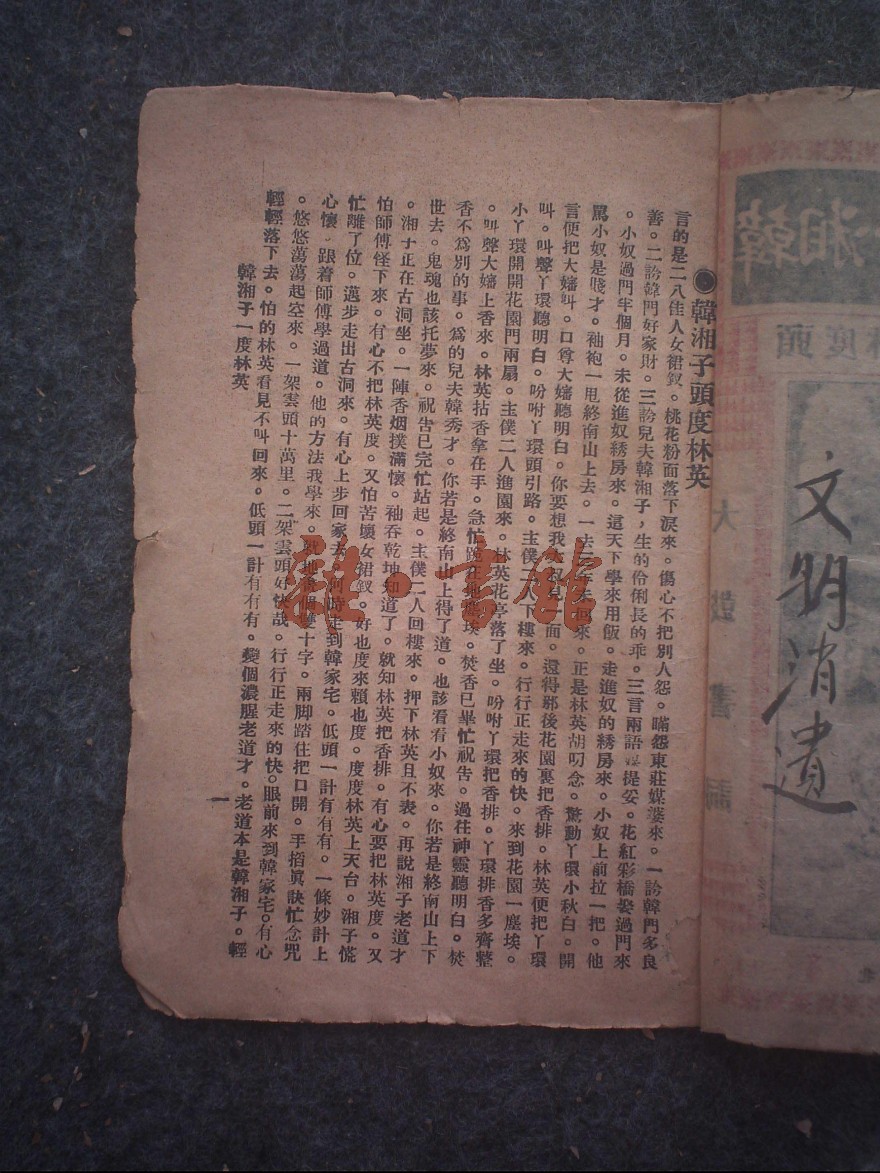 韓湘子頭度林英
言的是二八佳人女裙釵。桃花粉面落下淚來。傷心不把別人怨。瞞怨東莊媒婆來。一誇韓門多良
善。二誇韓門好家財。三誇兒夫韓湘子,生的伶俐長的乖。三言兩語提妥。花紅彩橋娶過門來
。小奴過門半個月。未從進奴綉房來。這天下學來用飯。走進奴的綉房來。小奴上前拉一把。他
罵小奴是賤才。袖袍一甩終南山上去。一去三年未回來。正是林英胡叨念。驚動丫環小秋白。開
言便把大嬸叫。口尊大嬸聽明白。你要想我面。還得那後花園裏把香排。林英便把丫環
叫。叫聲丫環聽明白。吩咐丫環頭引路。主僕二人下樓來。行行正走來的快。來到花園一塵埃。
小丫環開開花園門兩扇。主僕二人進園來。林英花亭落了坐。吩咐丫環把香排。丫環排香多齊整
。叫聲大嬸上香來。林英拈香拿在手。急忙跪在地塵埃。焚香已畢忙祝告。過往神靈聽明白。焚
香不爲別的事。爲的兒夫韓秀才。你若是終南山上得了道。也該看看小奴來。你若是終南山上下
世去。鬼魂也該托夢來。祝告已完忙站起。主僕二人回樓來。押下林英且不表。再說湘子老道才
。湘子正在古洞坐。一陣香烟撲滿懷。袖吞乾坤知道了。就知林英把香排。有心要把林英度。又
怕師傅怪下來。有心不把林英度。又怕苦壞女裙釵。好也度來賴也度。度度林英上天台。湘子慌
忙離了位。邁步走出古洞來。有心上步回家去。何時走到韓家宅。低頭一計有有有。一條妙計上
心懷。跟着師傅學過道。他的方法我學來。就地畫個雙十字。兩脚踏住把口開。手掐眞訣忙念咒
。悠悠蕩蕩起空來。一架雲頭十萬里。二架雲頭好快哉。行行正走來的快。眼前來到韓家宅。有心
輕輕落下去。怕的林英看見不叫回來。低頭一計有有有。變個濃腥老道才。老道本是韓湘子。輕
韓湘子一度林英
一
文明消遣
大鼓書詞
雜·書館